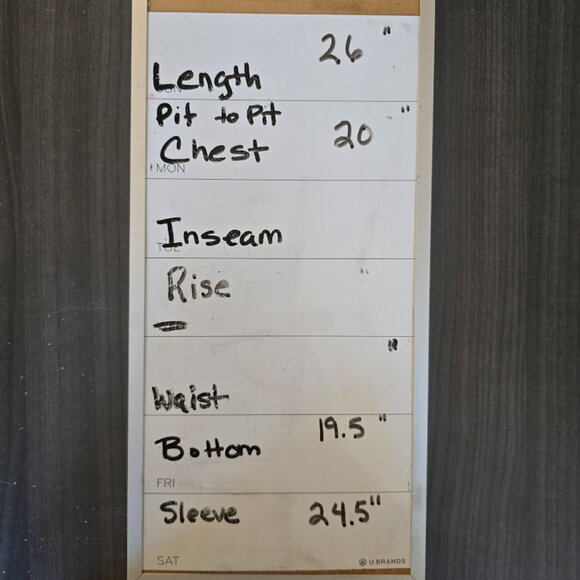 26 "
Length
Pit to Pit
20 "
Chest
MON
Inseam
Rise "
"
Waist
19.5 "
Bottom
FRI
Sleeve 24.5"
SAT
U BRANDS